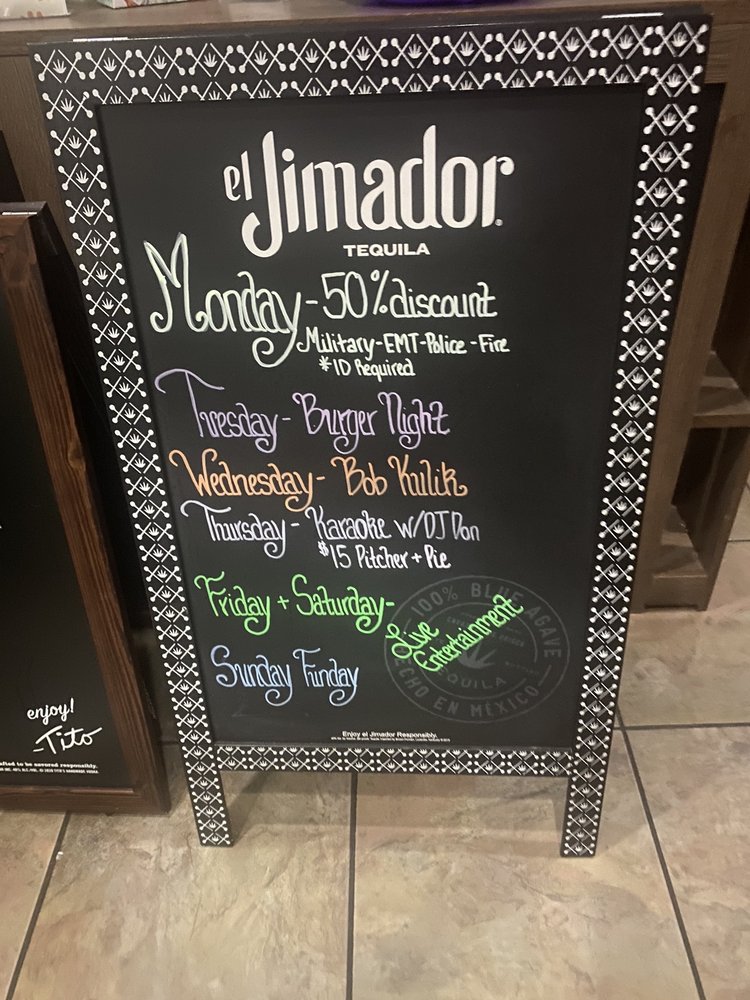 el Jimador
TEQUILA
Monday - 50% discount
Military - EMT - Police - Fire
* ID Required
Tuesday - Burger Night
Wednesday - Bob Kulik
Thursday - Karaoke w/DJ Don
$15 Pitcher + Pie
Friday + Saturday -
Live
Entertainment
Sunday Funday
100% BLUE AGAVE
TEQUILA
HECHO EN MÉXICO
Enjoy el Jimador Responsibly.
enjoy!
-Tito